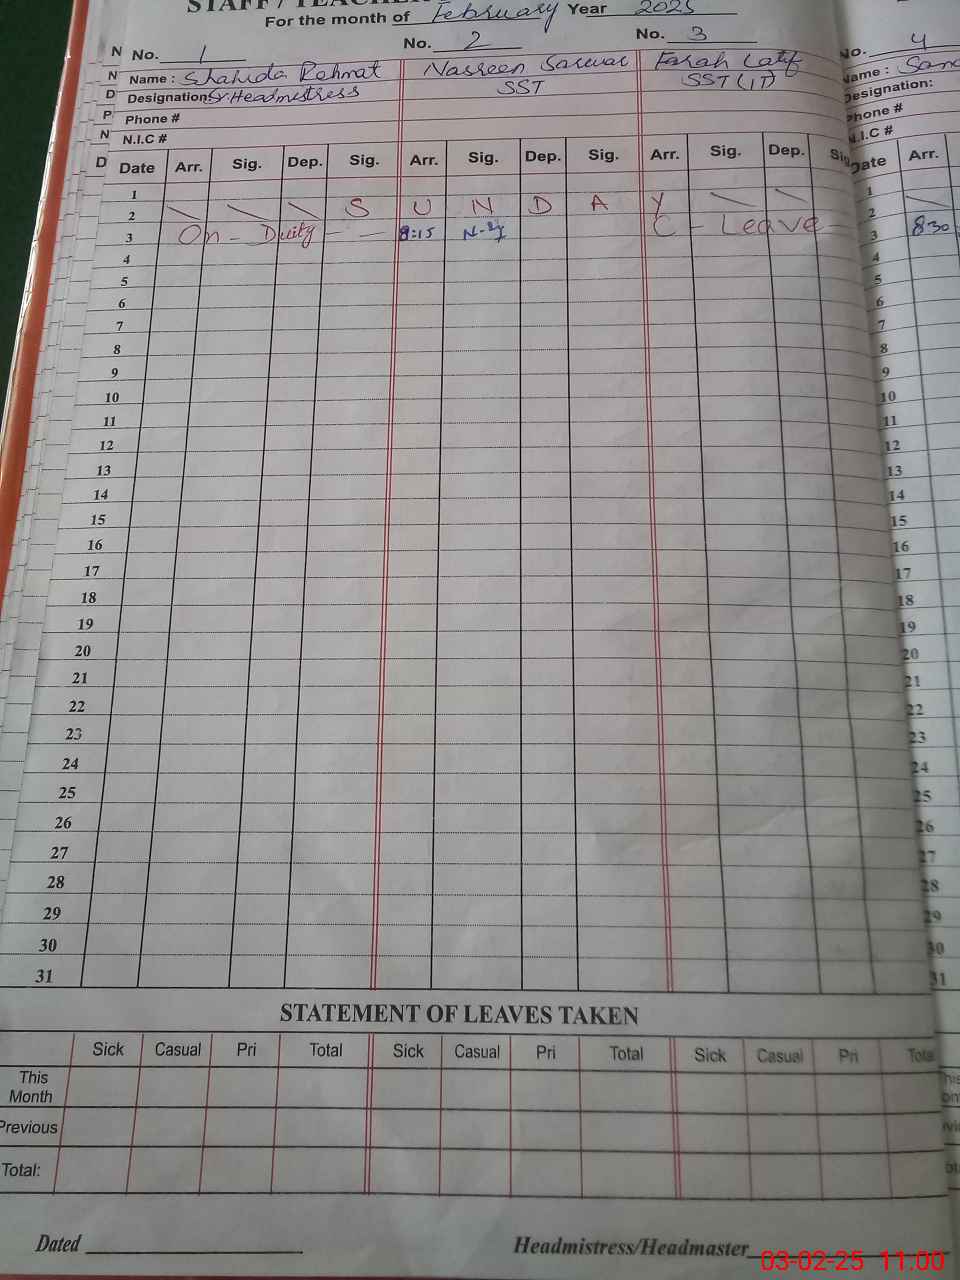 STAFF / TEACHER
For the month of February Year 2025
No. 1 No. 2 No. 3 No. 4
Name : Shahida Rehmat Nasreen Sarwar Farah Latif Name :
Designation: Sr. Headmistress SST SST (IT) Designation:
Phone # Phone #
N.I.C # N.I.C #
Date Arr. Sig. Dep. Sig. Arr. Sig. Dep. Sig. Arr. Sig. Dep. Sig. Date Arr.
1 1
2 S U N D A Y 2
3 On - Duty - - 8:15 C - Leave - 3 8:30
4 4
5 5
6 6
7 7
8 8
9 9
10 10
11 11
12 12
13 13
14 14
15 15
16 16
17 17
18 18
19 19
20 20
21 21
22 22
23 23
24 24
25 25
26 26
27 27
28 28
29 29
30 30
31 31
STATEMENT OF LEAVES TAKEN
Sick Casual Pri Total Sick Casual Pri Total Sick Casual Pri Total
This
Month
Previous
Total:
Dated Headmistress/Headmaster
03-02-25 11:00